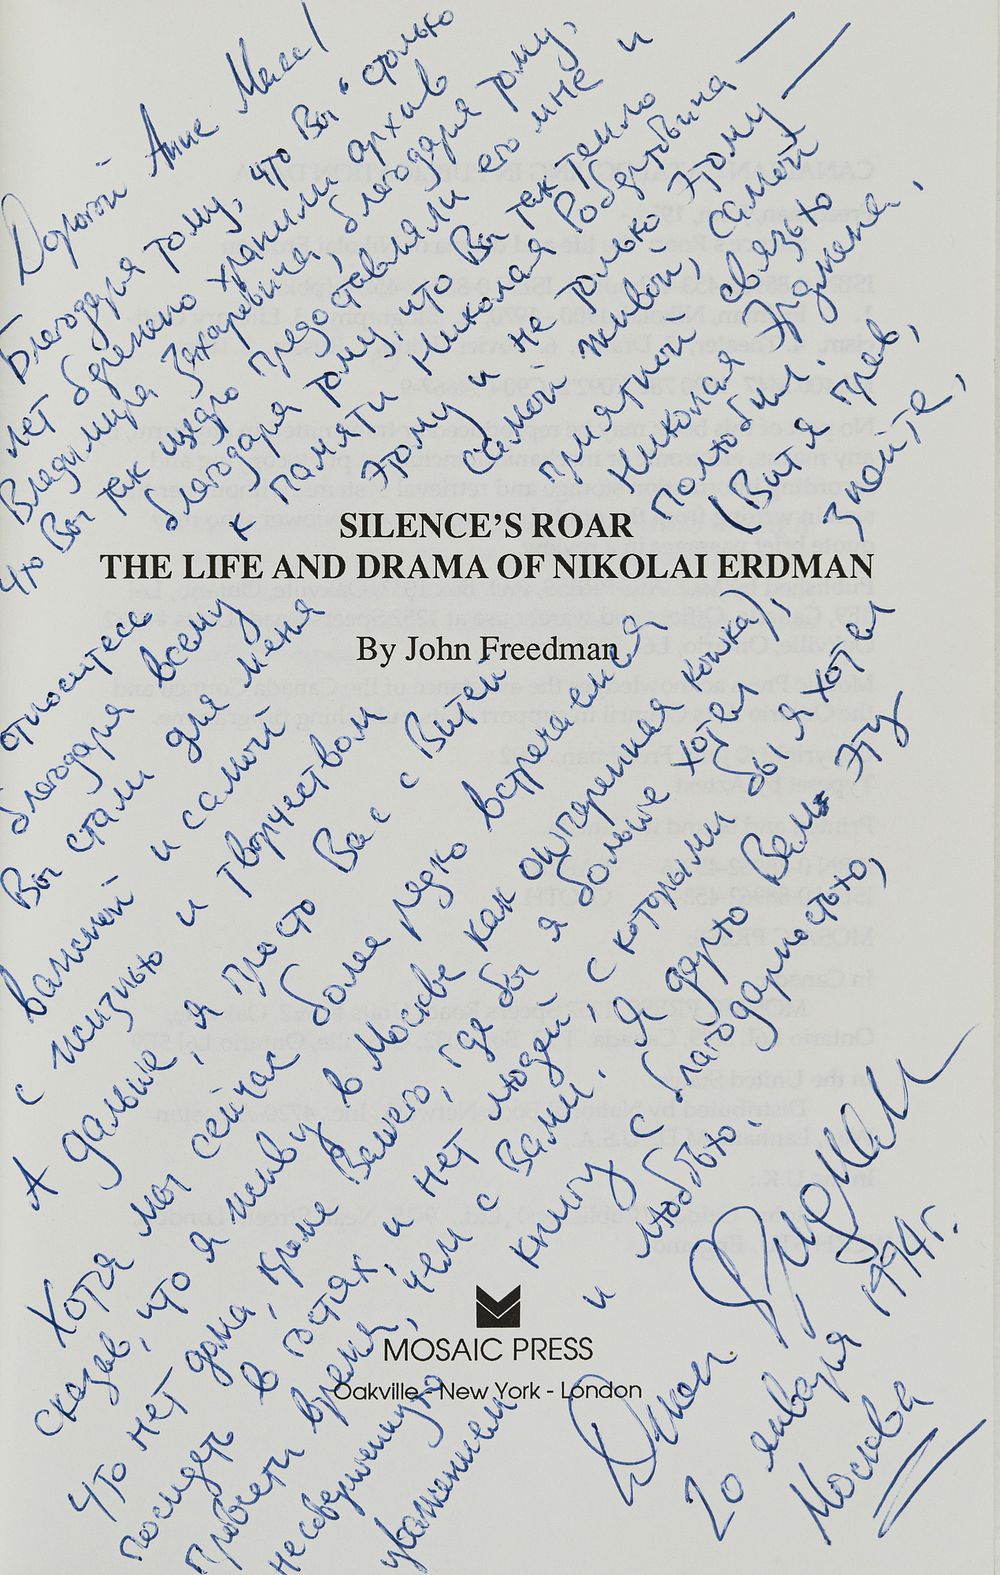 Дорогой Анне Масс!
Благодаря тому, что Вы столько
лет бережно хранили архив
Владимира Захаровича, благодаря тому,
что Вы так щедро предоставляли его мне и
благодаря тому, что Вы так тепло
относитесь к памяти Николая Робертовича —
благодаря всему этому и не только этому —
Вы стали для меня самой живой, самой
важной и самой приятной связью
с жизнью и творчеством Николая Эрдмана.
А дальше, я просто Вас с Витей полюбил.
Хотя мы сейчас более редко встречаемся (Витя прав,
сказав, что я живу в Москве как ошпаренная кошка), знайте,
что нет дома, кроме Вашего, где бы я больше хотел
посидеть в гостях, и нет людей, с которыми бы я хотел
провести время, чем с Вами. Я дарю Вам эту
несовершенную книгу с благодарностью,
уважением и любовью.
Джон Фридман
20 января 1994 г.
Москва
SILENCE'S ROAR
THE LIFE AND DRAMA OF NIKOLAI ERDMAN
By John Freedman
MOSAIC PRESS
Oakville - New York - London